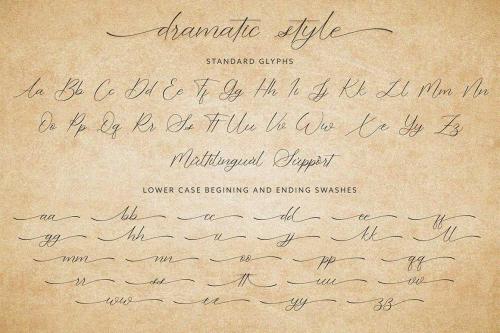 dramatic style
STANDARD GLYPHS
Aa Bb Cc Dd Ee Ff Gg Hh Ii Jj Kk Ll Mm Nn
Oo Pp Qq Rr Ss Tt Uu Vv Ww Xx Yy Zz
Multilingual Support
LOWER CASE BEGINING AND ENDING SWASHES
aa bb cc dd ee ff
gg hh ii jj kk ll
mm nn oo pp qq
rr ss tt uu vv
ww xx yy zz